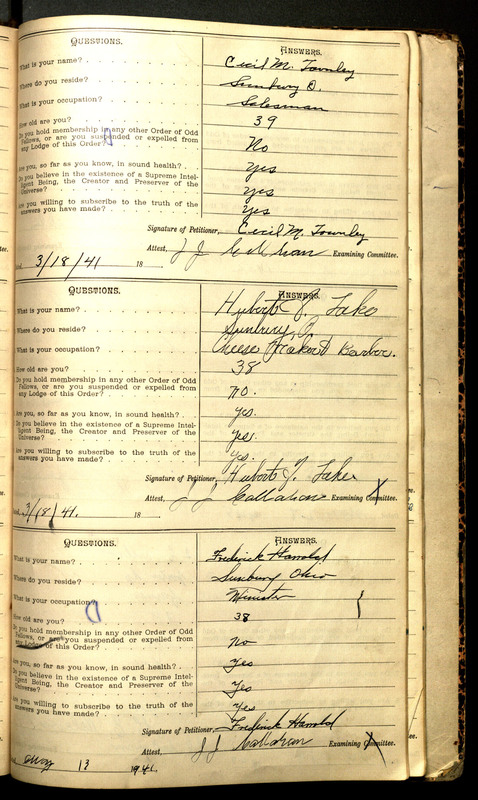 QUESTIONS. ANSWERS.
What is your name? Cecil M. Townley
Where do you reside? Sunbury O.
What is your occupation? Salesman
How old are you? 39
Do you hold membership in any other Order of Odd
Fellows, or are you suspended or expelled from
any Lodge of this Order? No
Are you, so far as you know, in sound health? Yes
Do you believe in the existence of a Supreme Intel-
ligent Being, the Creator and Preserver of the
Universe? Yes
Are you willing to subscribe to the truth of the
answers you have made? Yes
Signature of Petitioner, Cecil M. Townley
Attest, J J Callahan Examining Committee.
3/18/41 18
QUESTIONS. ANSWERS.
What is your name? Hubert J.
Where do you reside? Sunbury, O.
What is your occupation? Cheese Barber.
How old are you? 38
Do you hold membership in any other Order of Odd
Fellows, or are you suspended or expelled from
any Lodge of this Order? no.
Are you, so far as you know, in sound health? yes.
Do you believe in the existence of a Supreme Intel-
ligent Being, the Creator and Preserver of the
Universe? yes.
Are you willing to subscribe to the truth of the
answers you have made? yes.
Signature of Petitioner, Hubert J.
Attest, J J Callahan Examining Committee.
3/18/41. 18
QUESTIONS. ANSWERS.
What is your name? Frederick
Where do you reside? Sunbury Ohio
What is your occupation? Minister
How old are you? 38
Do you hold membership in any other Order of Odd
Fellows, or are you suspended or expelled from
any Lodge of this Order? No
Are you, so far as you know, in sound health? Yes
Do you believe in the existence of a Supreme Intel-
ligent Being, the Creator and Preserver of the
Universe? Yes
Are you willing to subscribe to the truth of the
answers you have made? Yes
Signature of Petitioner, Frederick
Attest, J J Callahan Examining Committee.
13 1941.